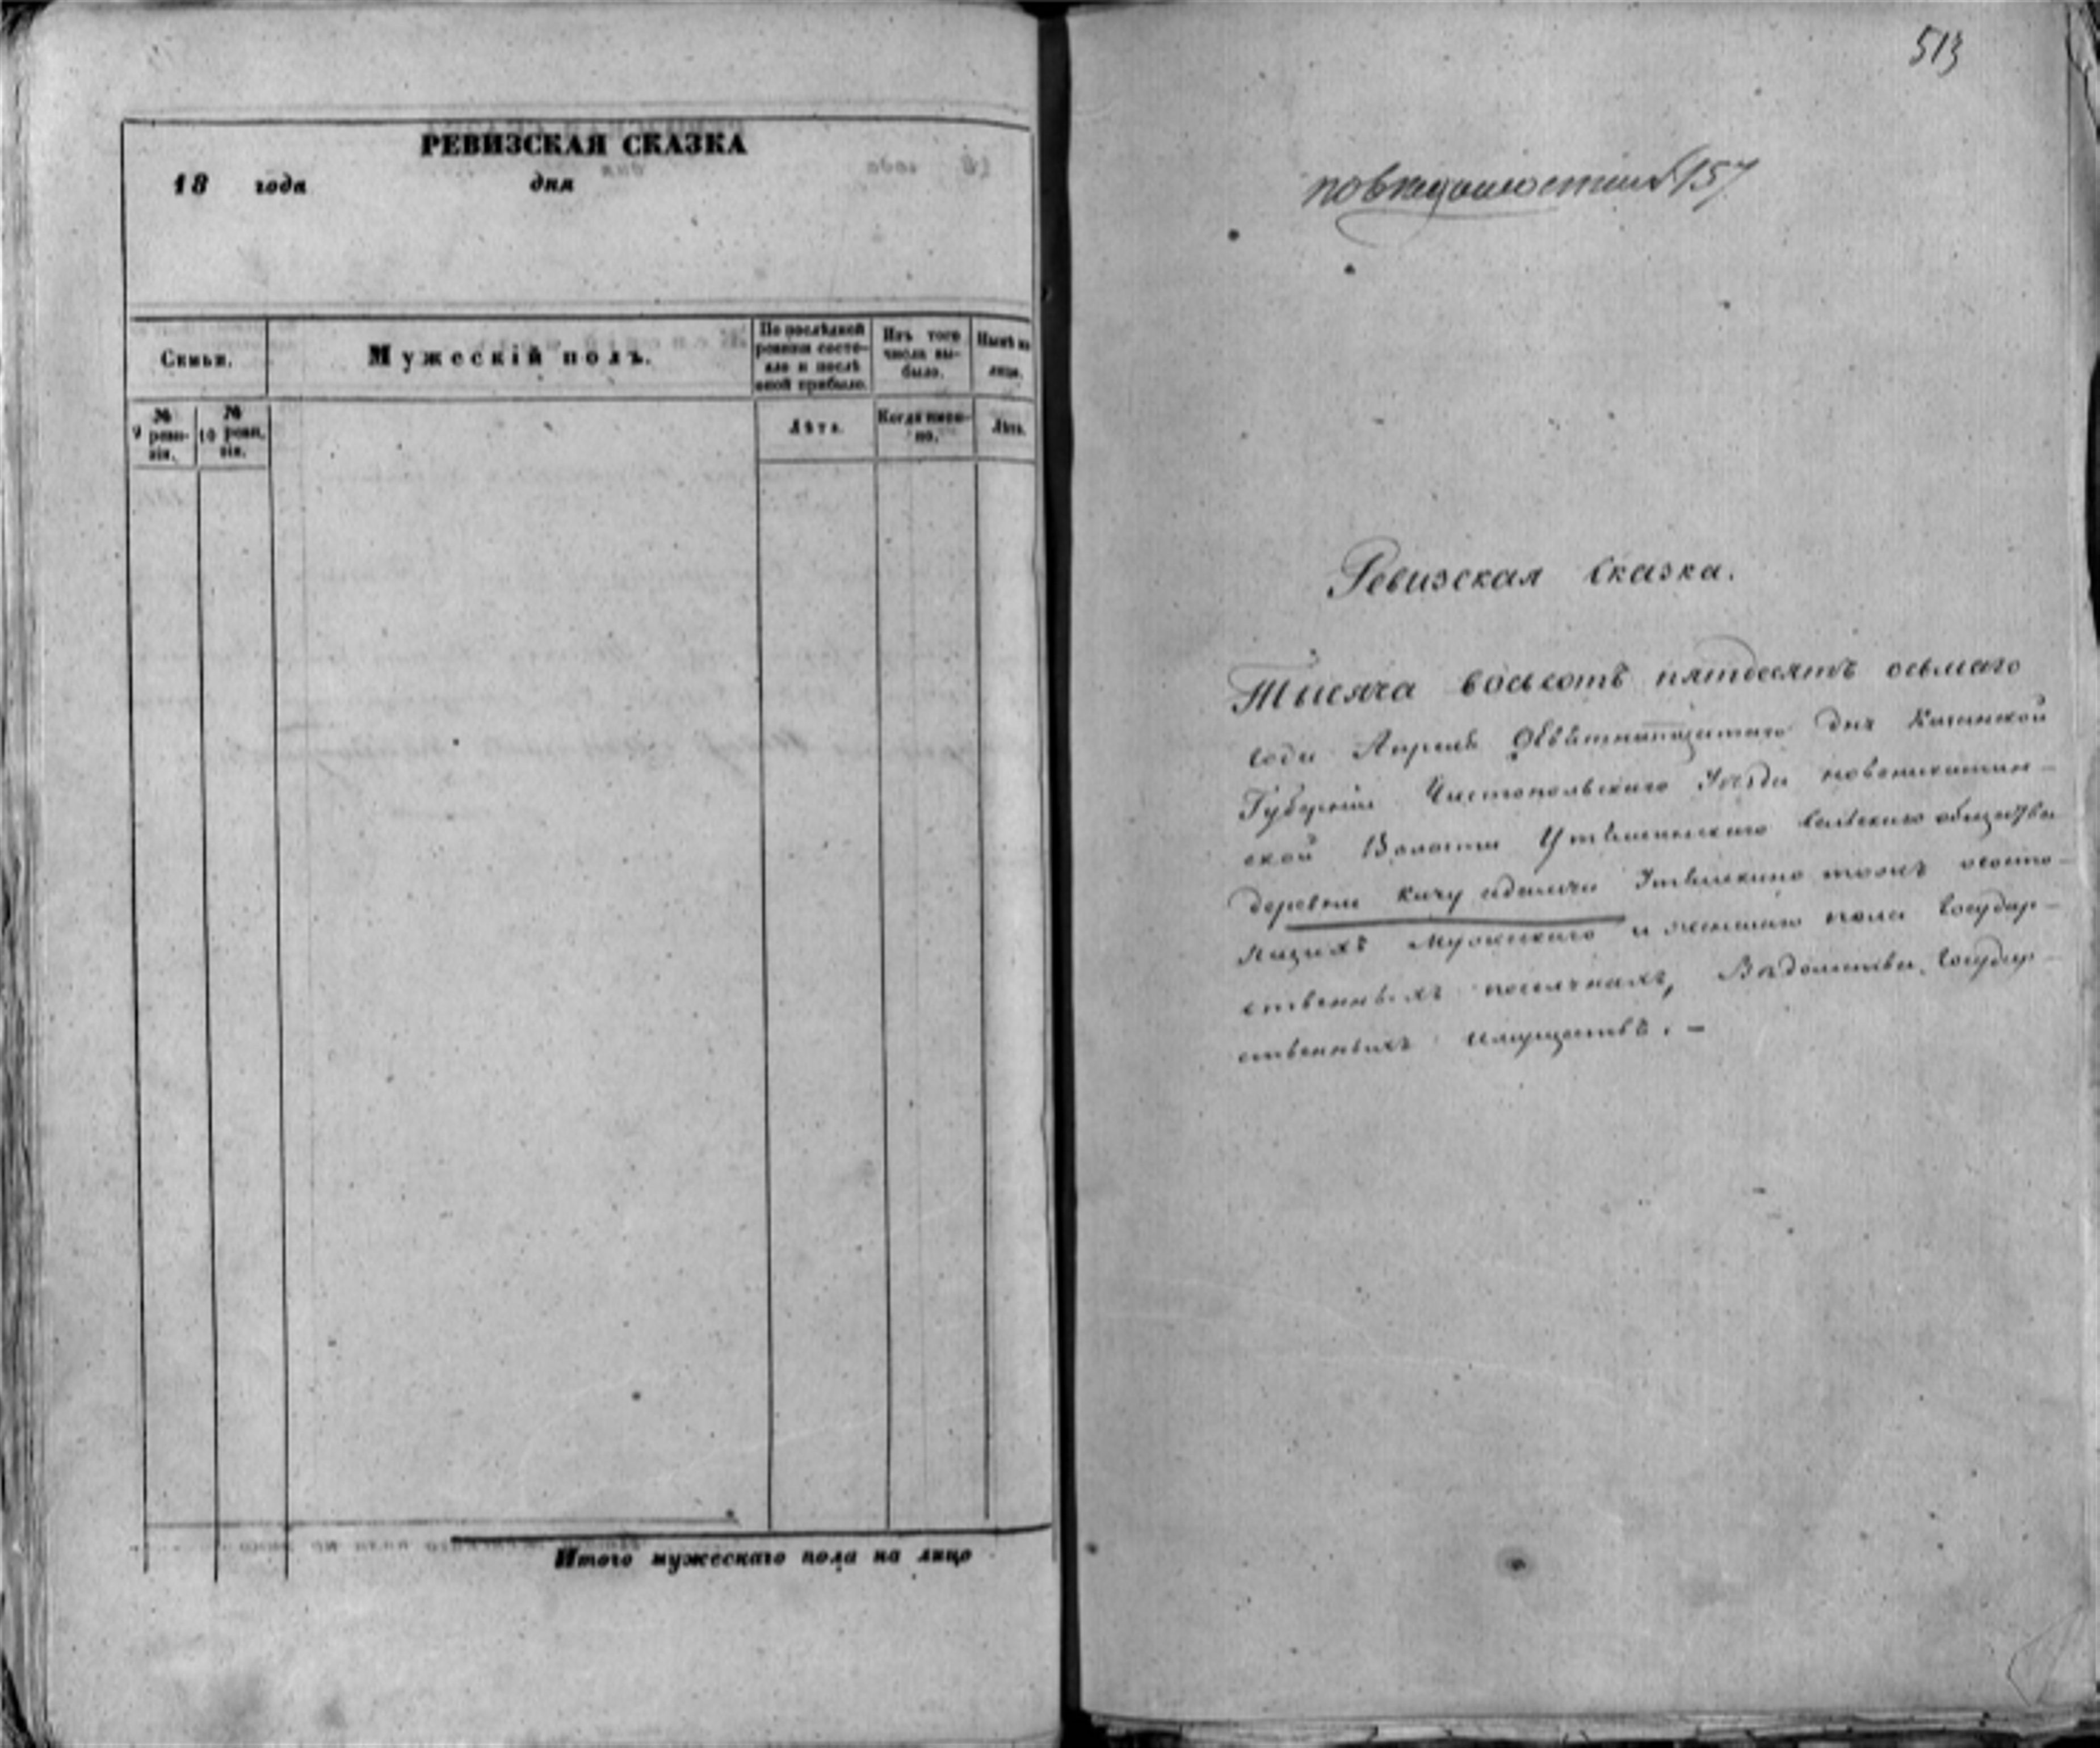 РЕВИЗСКАЯ СКАЗКА
18 года дня
Семьи.
Мужескій полъ.
По послѣдней ревизіи состояло и послѣ оной прибыло.
Изъ того числа выбыло.
Нынѣ на лицо.
№ 9 ревизіи.
№ 10 ревизіи.
Лѣта.
Когда именно.
Лѣта.
Итого мужескаго пола на лицо
513
по вѣдомости № 157
Ревизская сказка.
Тысяча восьсотъ пятдесятъ осьмаго
года Апреля девятнатцатаго дня Казанской
Губерніи Чистопольскаго Уѣзда новоникитин-
ской Волости Утяшкинскаго сельскаго общества
деревни кичу Утяшкино тожъ о состо-
ящихъ мужескаго и женскаго пола государ-
ственныхъ поселянахъ, Вѣдомства государ-
ственныхъ имуществъ. —